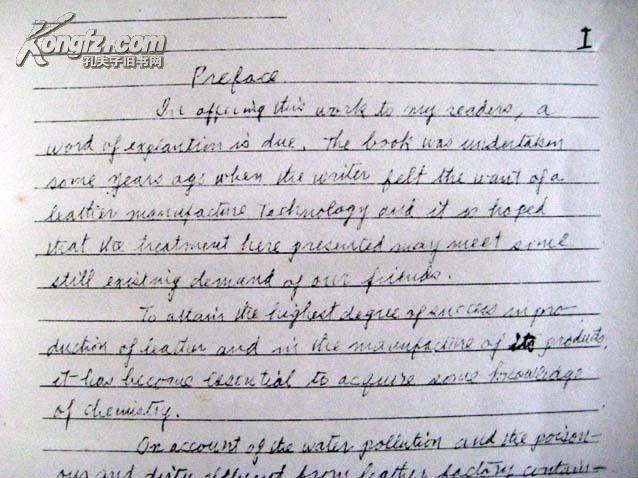 Kongfz.com
孔夫子旧书网
I
Preface
In offering this work to my readers, a
word of explantion is due. The book was undertaken
some years ago when the writer felt the want of a
leather manufacture Technology and it is hoped
that the treatment here presented may meet some
still existing demand of our friends.
To attain the highest degree of success in pro-
duction of leather and in the manufacture of its products,
it has become essential to acquire some knowledge
of chemistry.
On account of the water pollution and the poison-
ous and dirty effluent from leather factory contain-